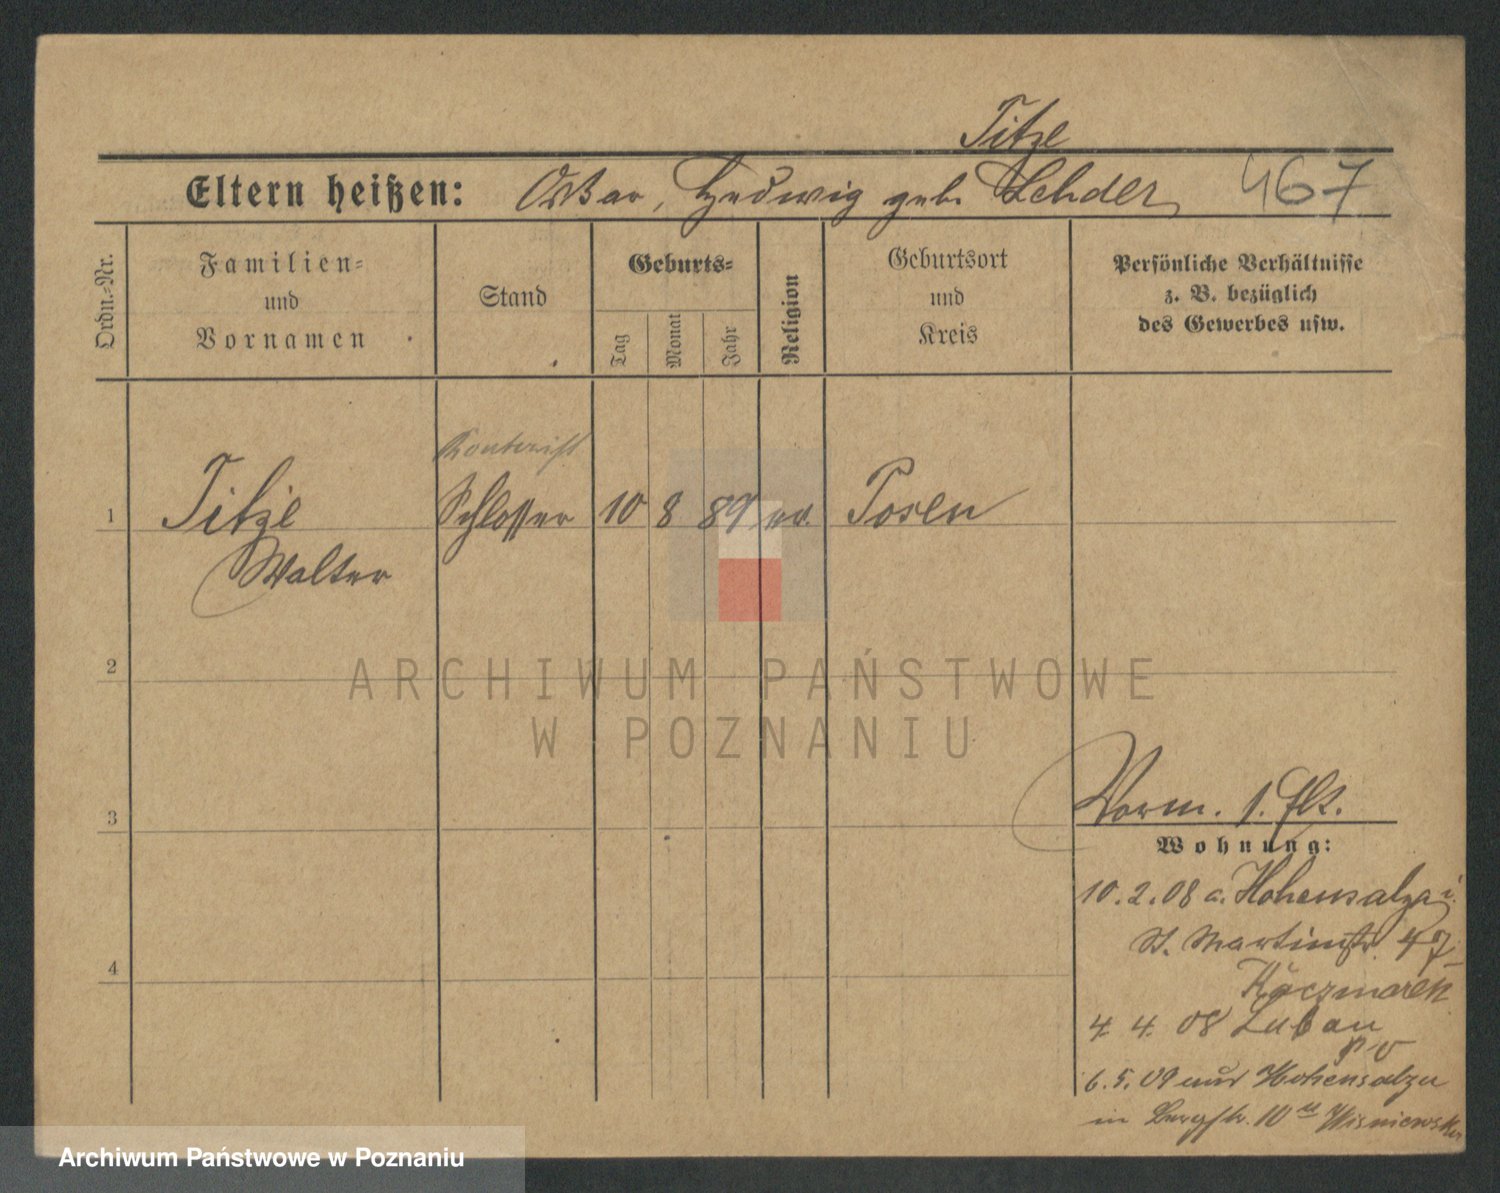 Titze
Eltern heißen: Oskar, Hedwig geb. Lehder 467
Ordn.-Nr.
Familien-
und
Vornamen
Stand
Geburts-
Tag
Monat
Jahr
Religion
Geburtsort
und
Kreis
Persönliche Verhältnisse
z. B. bezüglich
des Gewerbes usw.
Kontorist
1 Titze Schlosser 10 8 89 ev. Posen
Walter
2
ARCHIWUM PAŃSTWOWE
W POZNANIU
3
Vorm. 1. Flt.
Wohnung:
10.2.08 a. Hohensalza i.
St. Martinstr. 47
Kaczmarek
4
4. 4. 08 Luban
6.5.09 aus Hohensalza
in Bergstr. 10 Wisniewski
Archiwum Państwowe w Poznaniu